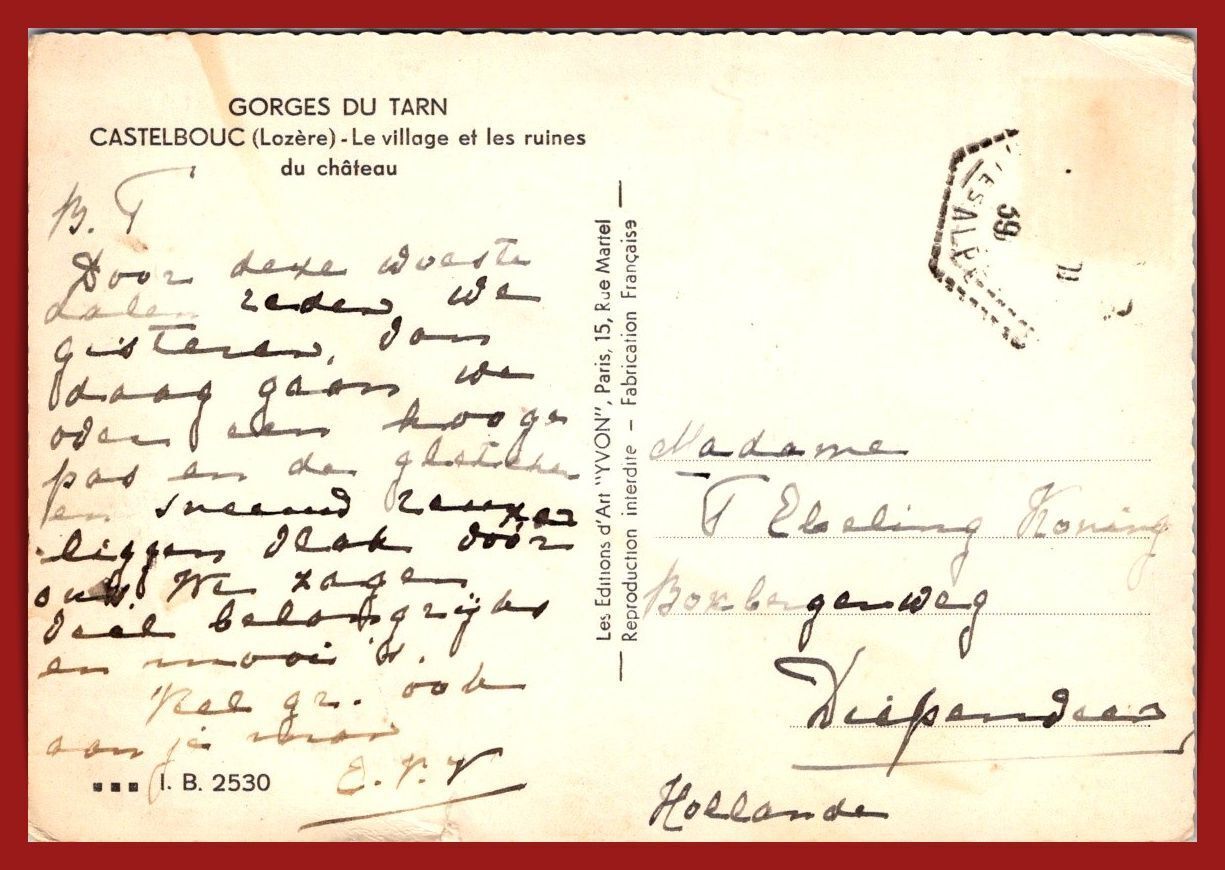 GORGES DU TARN
CASTELBOUC (Lozère) - Le village et les ruines
du château
B. T
Door deze woeste
dalen reden we
gisteren, van
daag gaan we
over een hooge
pas en de gletscher
en sneeuw
liggen vlak voor
ons. We zagen
veel belangrijks
en moois.
Vel gr. ook
aan je man
E. V. V
I. B. 2530
Les Editions d'Art "YVON", Paris, 15, Rue Martel
Reproduction interdite - Fabrication Française
39
Madame
T Ebeling Koning
Boxbergenweg
Diepenveen
Hollande